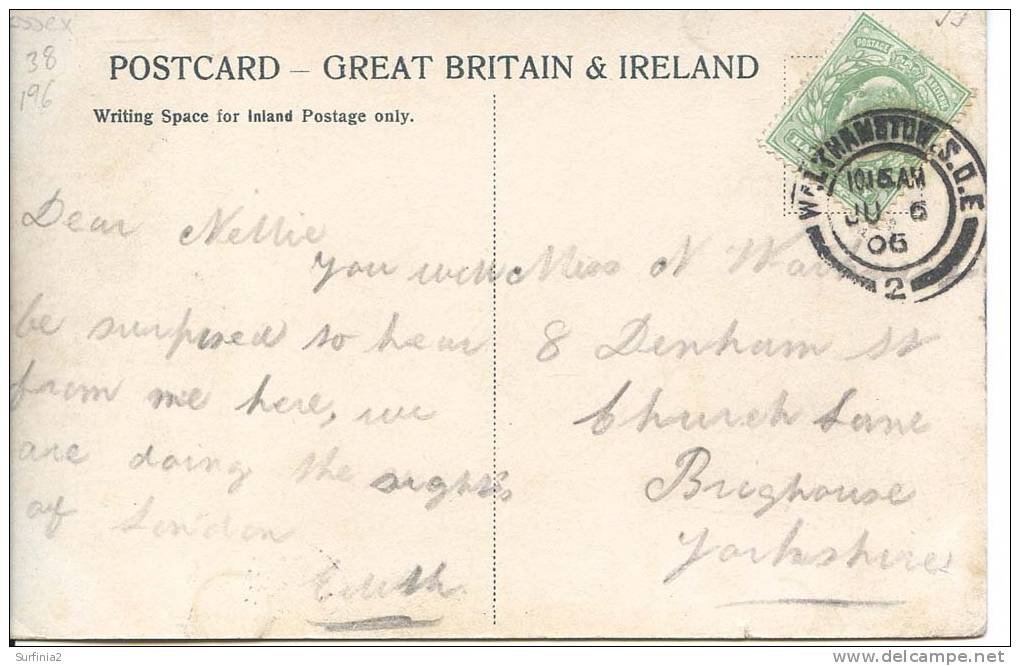 Essex
38
196
13
POSTCARD – GREAT BRITAIN & IRELAND
Writing Space for Inland Postage only.
POSTAGE
WALTHAMSTOW. S.O.E
10 15 AM
JU 6
06
2
Dear Nellie
You will
be surprised to hear
from me here, we
are doing the sights
of London
Edith
Miss N
8 Denham St
Church Lane
Brighouse
Yorkshire
Surfinia2
www.delcampe.net